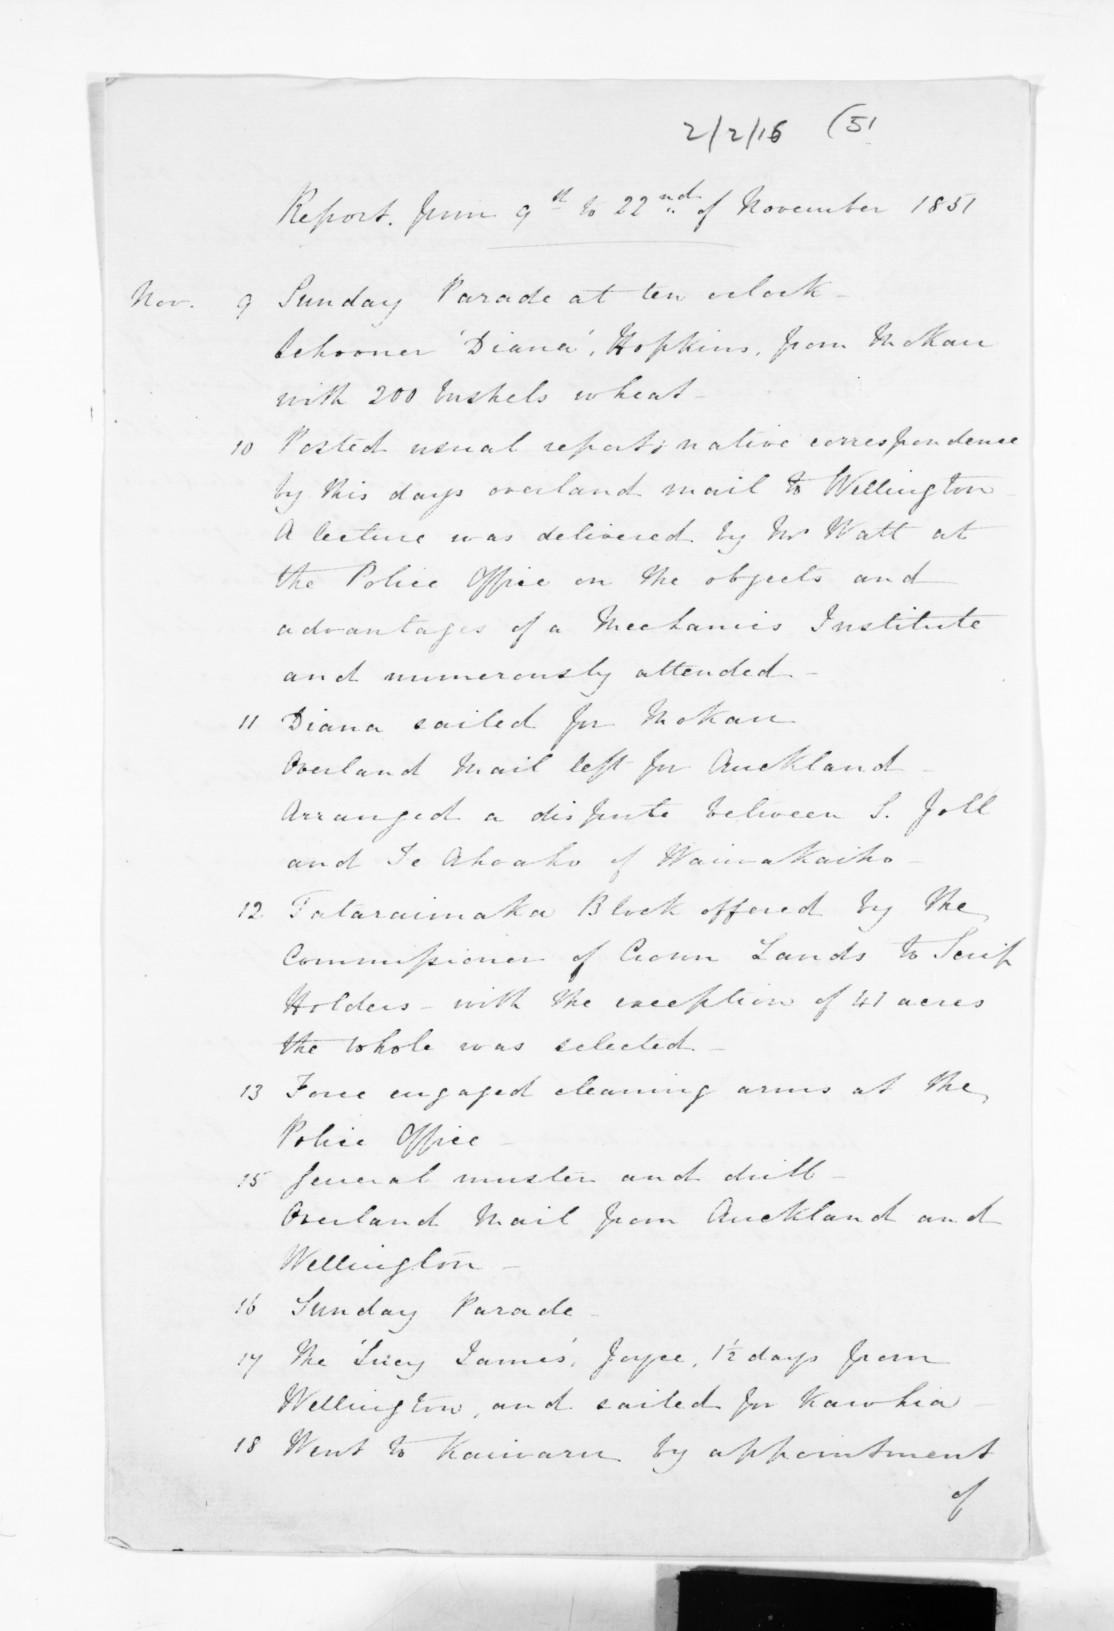 2/2/16 (51
Report. from 9th to 22nd of November 1851
Nov. 9 Sunday Parade at ten oclock -
Schooner 'Diana', Hopkins, from Mokau
with 200 bushels wheat -
10 Posted usual report; native correspondence
by this days overland mail to Wellington -
A lecture was delivered by Mr Watt at
the Police Office on the objects and
advantages of a Mechanics Institute
and numerously attended -
11 Diana sailed for Mokau
Overland Mail left for Auckland -
Arranged a dispute between S. Joll
and Te Ahoaho of Waiwakaiho -
12 Tataraimaka Block offered by the
Commissioner of Crown Lands to Scrip
Holders - with the exception of 41 acres
the whole was selected -
13 Force engaged cleaning arms at the
Police Office -
15 General muster and drill -
Overland Mail from Auckland and
Wellington -
16 Sunday Parade -
17 The 'Lucy James', Joyce, 1½ days from
Wellington, and sailed for Kawhia -
18 Went to Kaiwaru by appointment
of